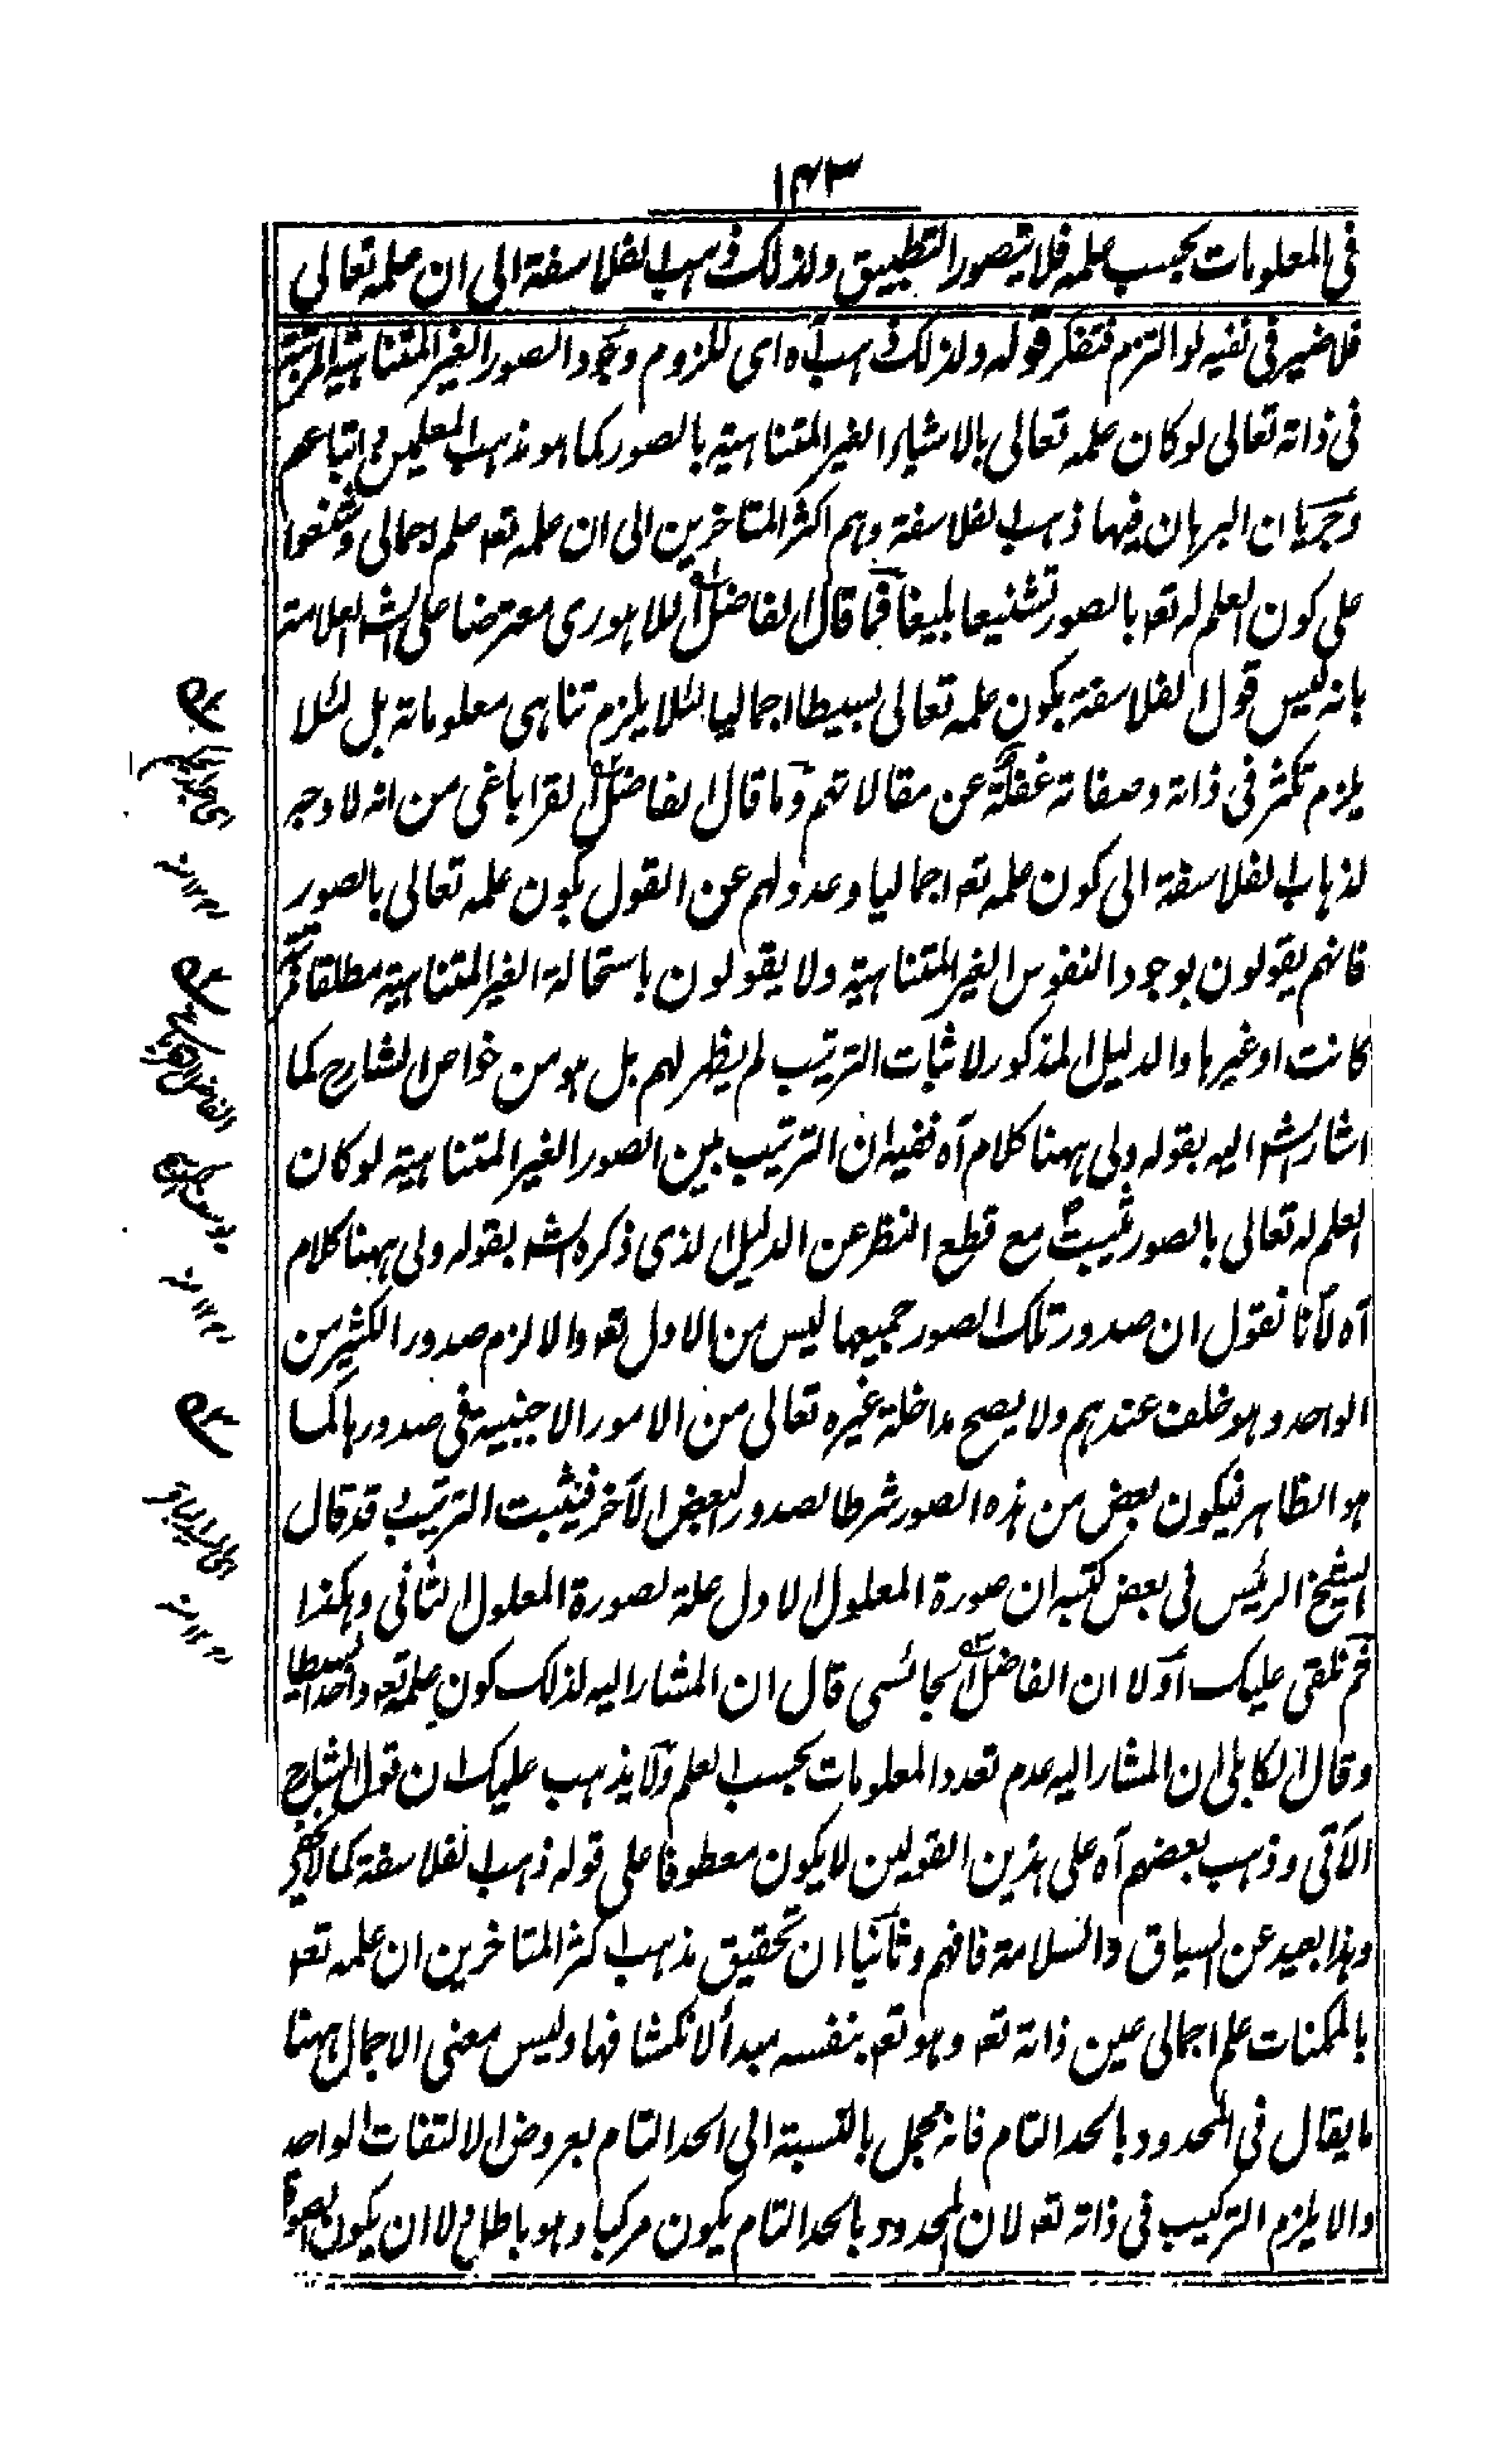 ١٤٣
فى المعلومات بحسب علمه فلا يتصور التطبيق ولذلك ذهب الفلاسفة الى ان علمه تعالى
فلا ضير فى نفيه لو التزم فتفكر قوله ولذلك ذهب آه اى للزوم وجود الصور الغير المتناهية المرتبة
فى ذاته تعالى لو كان علمه تعالى بالاشياء الغير المتناهية بالصور كما هو مذهب المعلمين واتباعهم
وجريان البرهان فيها ذهب الفلاسفة وهم اكثر المتاخرين الى ان علمه تعه علم اجمالى وشنعوا
على كون العلم له تعه بالصور تشنيعا بليغا فما قال الفاضل اللاهورى معترضا على الشه العلامة
بانه ليس قول الفلاسفة بكون علمه تعالى بسيطا اجماليا لئلا يلزم تناهى معلوماته بل لئلا
يلزم تكثر فى ذاته وصفاته غفلة عن مقالاتهم وما قال الفاضل القراباغى من انه لا وجه
لذهاب الفلاسفة الى كون علمه تعه اجماليا وعدولهم عن القول بكون علمه تعالى بالصور
فانهم يقولون بوجود النفوس الغير المتناهية ولا يقولون باستحالة الغير المتناهية مطلقا مرتبة
كانت او غيرها والدليل المذكور لاثبات الترتيب لم يظهر لهم بل هو من خواص الشارح كما
اشار الشه اليه بقوله ولى ههنا كلام آه ففيه ان الترتيب بين الصور الغير المتناهية لو كان
العلم له تعالى بالصور يثبت مع قطع النظر عن الدليل الذى ذكره الشه بقوله ولى ههنا كلام
آه لانا نقول ان صدور تلك الصور جميعها ليس من الاول تعه والا لزم صدور الكثير من
الواحد وهو خلف عندهم ولا يصح مداخلة غيره تعالى من الامور الاجنبية فى صدورها كما
هو الظاهر فيكون بعض من هذه الصور شرطا لصدور البعض الآخر فيثبت الترتيب وقد قال
الشيخ الرئيس فى بعض كتبه ان صورة المعلول الاول علة لصورة المعلول الثانى وهكذا
ثم نلقى عليك اولا ان الفاضل قال ان المشار اليه لذلك كون علمه تعه واحدا بسيطا
وقال الكابلى ان المشار اليه عدم تعدد المعلومات بحسب العلم ولا يذهب عليك ان قول الشارح
الآتى وذهب بعضهم آه على هذين القولين لا يكون معطوفا على قوله ذهب الفلاسفة كما لا يخفى
وهذا بعيد عن السياق والسلامة فافهم وثانيا ان تحقيق مذهب اكثر المتاخرين ان علمه تعه
بالممكنات علم اجمالى عين ذاته تعه وهو تعه بنفسه مبدأ لانكشافها وليس معنى الاجمال ههنا
ما يقال فى المحدود بالحد التام فانه مجمل بالنسبة الى الحد التام بعروض الالتفات الواحد
والا يلزم التركيب فى ذاته تعه لان المحدود بالحد التام يكون مركبا وهو باطل لا ان يكون الصورة